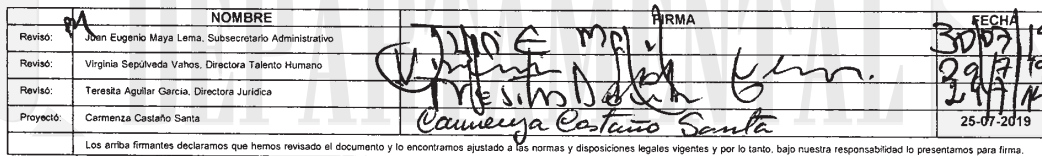 NOMBRE FIRMA FECHA
Revisó: Juan Eugenio Maya Lema, Subsecretario Administrativo 30/07/19
Revisó: Virginia Sepúlveda Vahos, Directora Talento Humano 29/7/19
Revisó: Teresita Aguilar García, Directora Jurídica 29/7/19
Proyectó: Carmenza Castaño Santa Carmenza Castaño Santa 25-07-2019
Los arriba firmantes declaramos que hemos revisado el documento y lo encontramos ajustado a las normas y disposiciones legales vigentes y por lo tanto, bajo nuestra responsabilidad lo presentamos para firma.